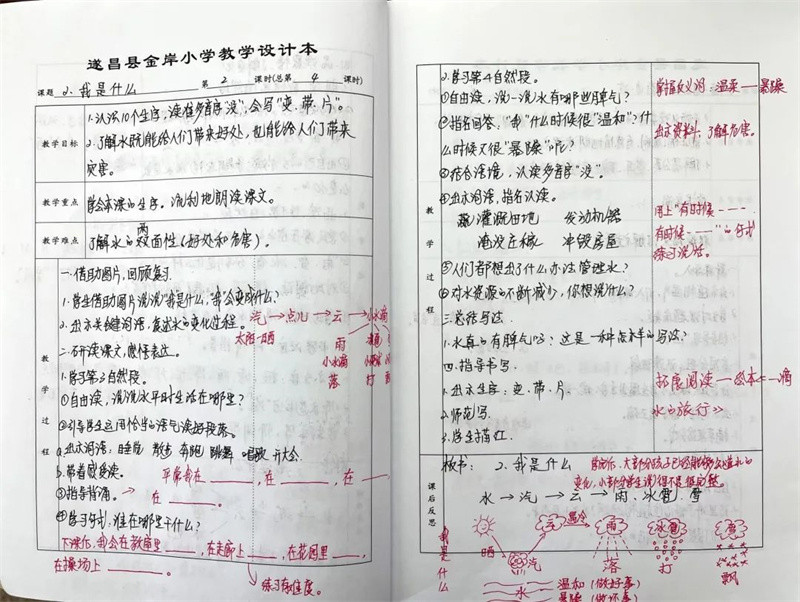 遂昌县金岸小学教学设计本
课题 2、我是什么 第 2 课时(总第 4 课时)
教学目标
1.认识10个生字,读准多音字"没",会写"变、带、片"。
2.了解水既能给人们带来好处,也能给人们带来
灾害。
教学重点
学会本课的生字。流利地朗读课文。
教学难点
了解水的两面性(好处和危害)。
教学过程
一、借助图片,回顾复习
1.学生借助图片说说"我是什么,我会变成什么?
2.出示关键词语,复述水的变化过程。
汽→点儿→云→小水滴
太阳一晒
雨
小水滴
落
打
二、研读课文,感悟表达。
1.学习第3自然段。
①自由读,说说水平时生活在哪里?
②引导学生运用恰当的语气读好段落。
a.出示词语:睡觉 散步 奔跑 跳舞 唱歌 开大会
b.带着感受读。
平常我在______,在______,在______
③指导背诵。→在______。
④学习句式:谁在哪里干什么?
下课后,我会在教室里______,在走廊上______,在花园里______,
在操场上______。
练习有难度。
2.学习第4自然段。
①自由读,说一说水有哪些脾气?
掌握反义词:温柔——暴躁
②指名回答:"我"什么时候很"温和"?什
么时候又很"暴躁"呢?
出示资料,了解危害。
③结合语境,认读多音字"没"。
④出示词语,指名认读。
灌溉田地 发动机器
淹没庄稼 冲毁房屋
用上"有时候----
有时候----"的句式
练习说话。
教学过程
⑤人们都想出了什么办法管理水?
⑥对水资源的不断减少,你想说什么?
三、总结写法
1.水真的有脾气吗?这是一种怎样的写法?
四、指导书写
1.出示生字:变、带、片。
2.师范写
3.学生描红
拓展阅读——绘本《一滴
水的旅行》
课后反思
板书: 2、我是什么
水→汽→云→雨、冰雹、雪
我是什么
晒
汽
云
遇冷
雨
落
冰雹
打
雪
飘
水
温和(做好事)
暴躁(做坏事)